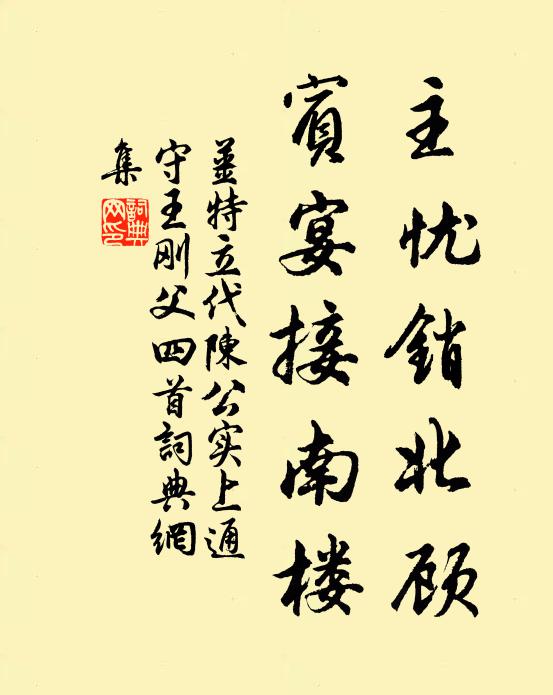 主忧销北顾
賓宴接南楼
薑特立代陳公实上通
守王刚父四首詞典網
集
詞典
网印